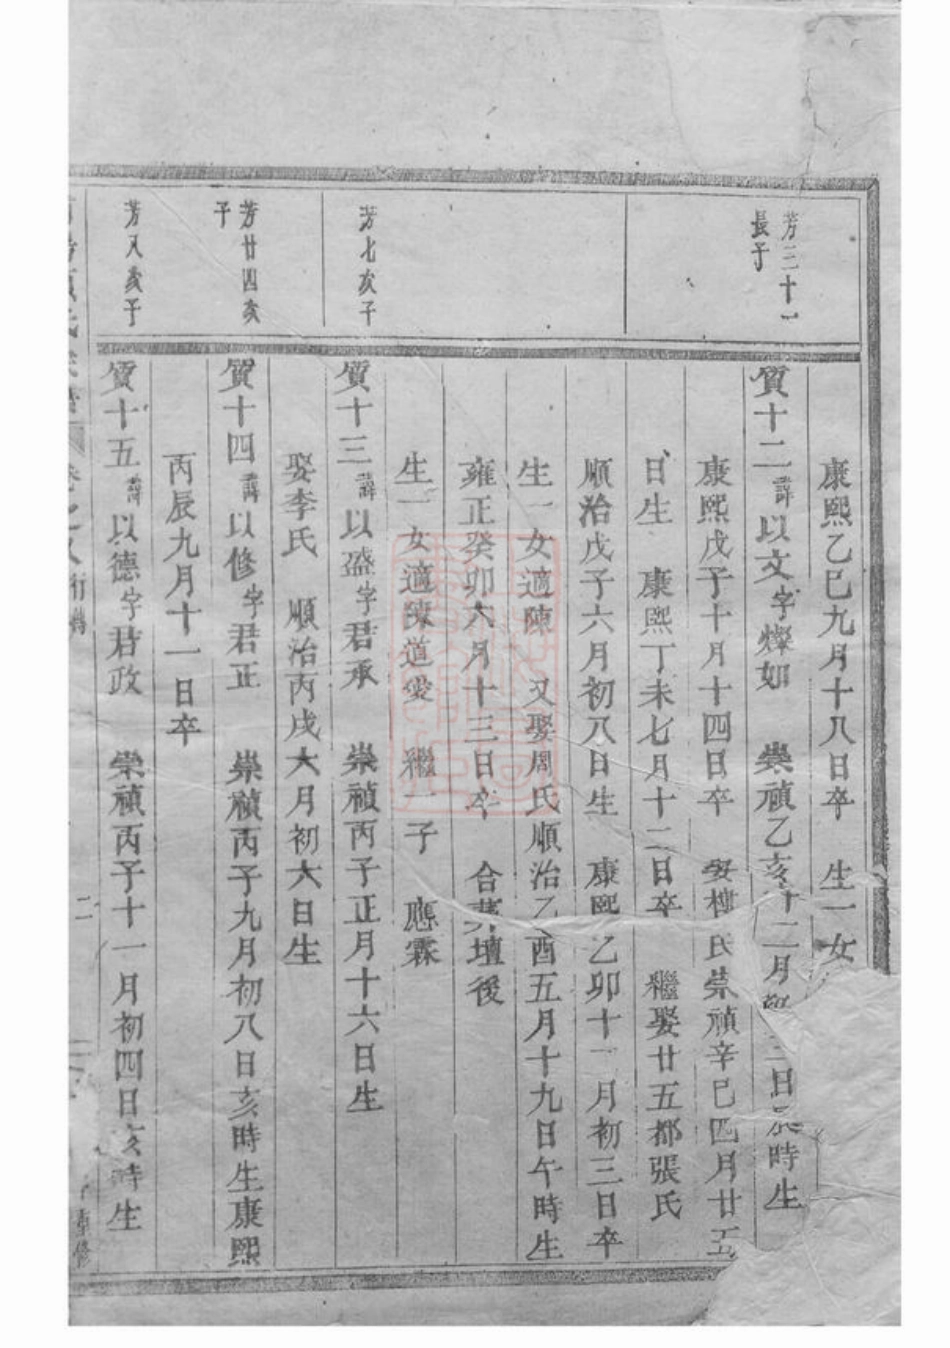 康熙乙巳九月十八日卒 生一女
芳三十一
長子
質十二諱以文字燦如 崇禎乙亥十二月 三日辰時生
康熙戊子十月十四日卒 娶 氏崇禎辛巳四月廿五
日生 康熙丁未七月十二日卒 繼娶廿五都張氏
順治戊子六月初八日生 康熙乙卯十一月初三日卒
生一女適陳 又娶周氏順治乙酉五月十九日午時生
雍正癸卯六月十三日卒 合葬壇後
生一女適陳道 繼一子 應霖
芳七次子
質十三諱以盛字君承 崇禎丙子正月十六日生
娶李氏 順治丙戌六月初六日生
芳廿四次
子
質十四諱以修字君正 崇禎丙子九月初八日亥時生康熙
丙辰九月十一日卒
芳八次子
質十五諱以德字君政 崇禎丙子十一月初四日亥時生
卷之八 行傳 二 重修